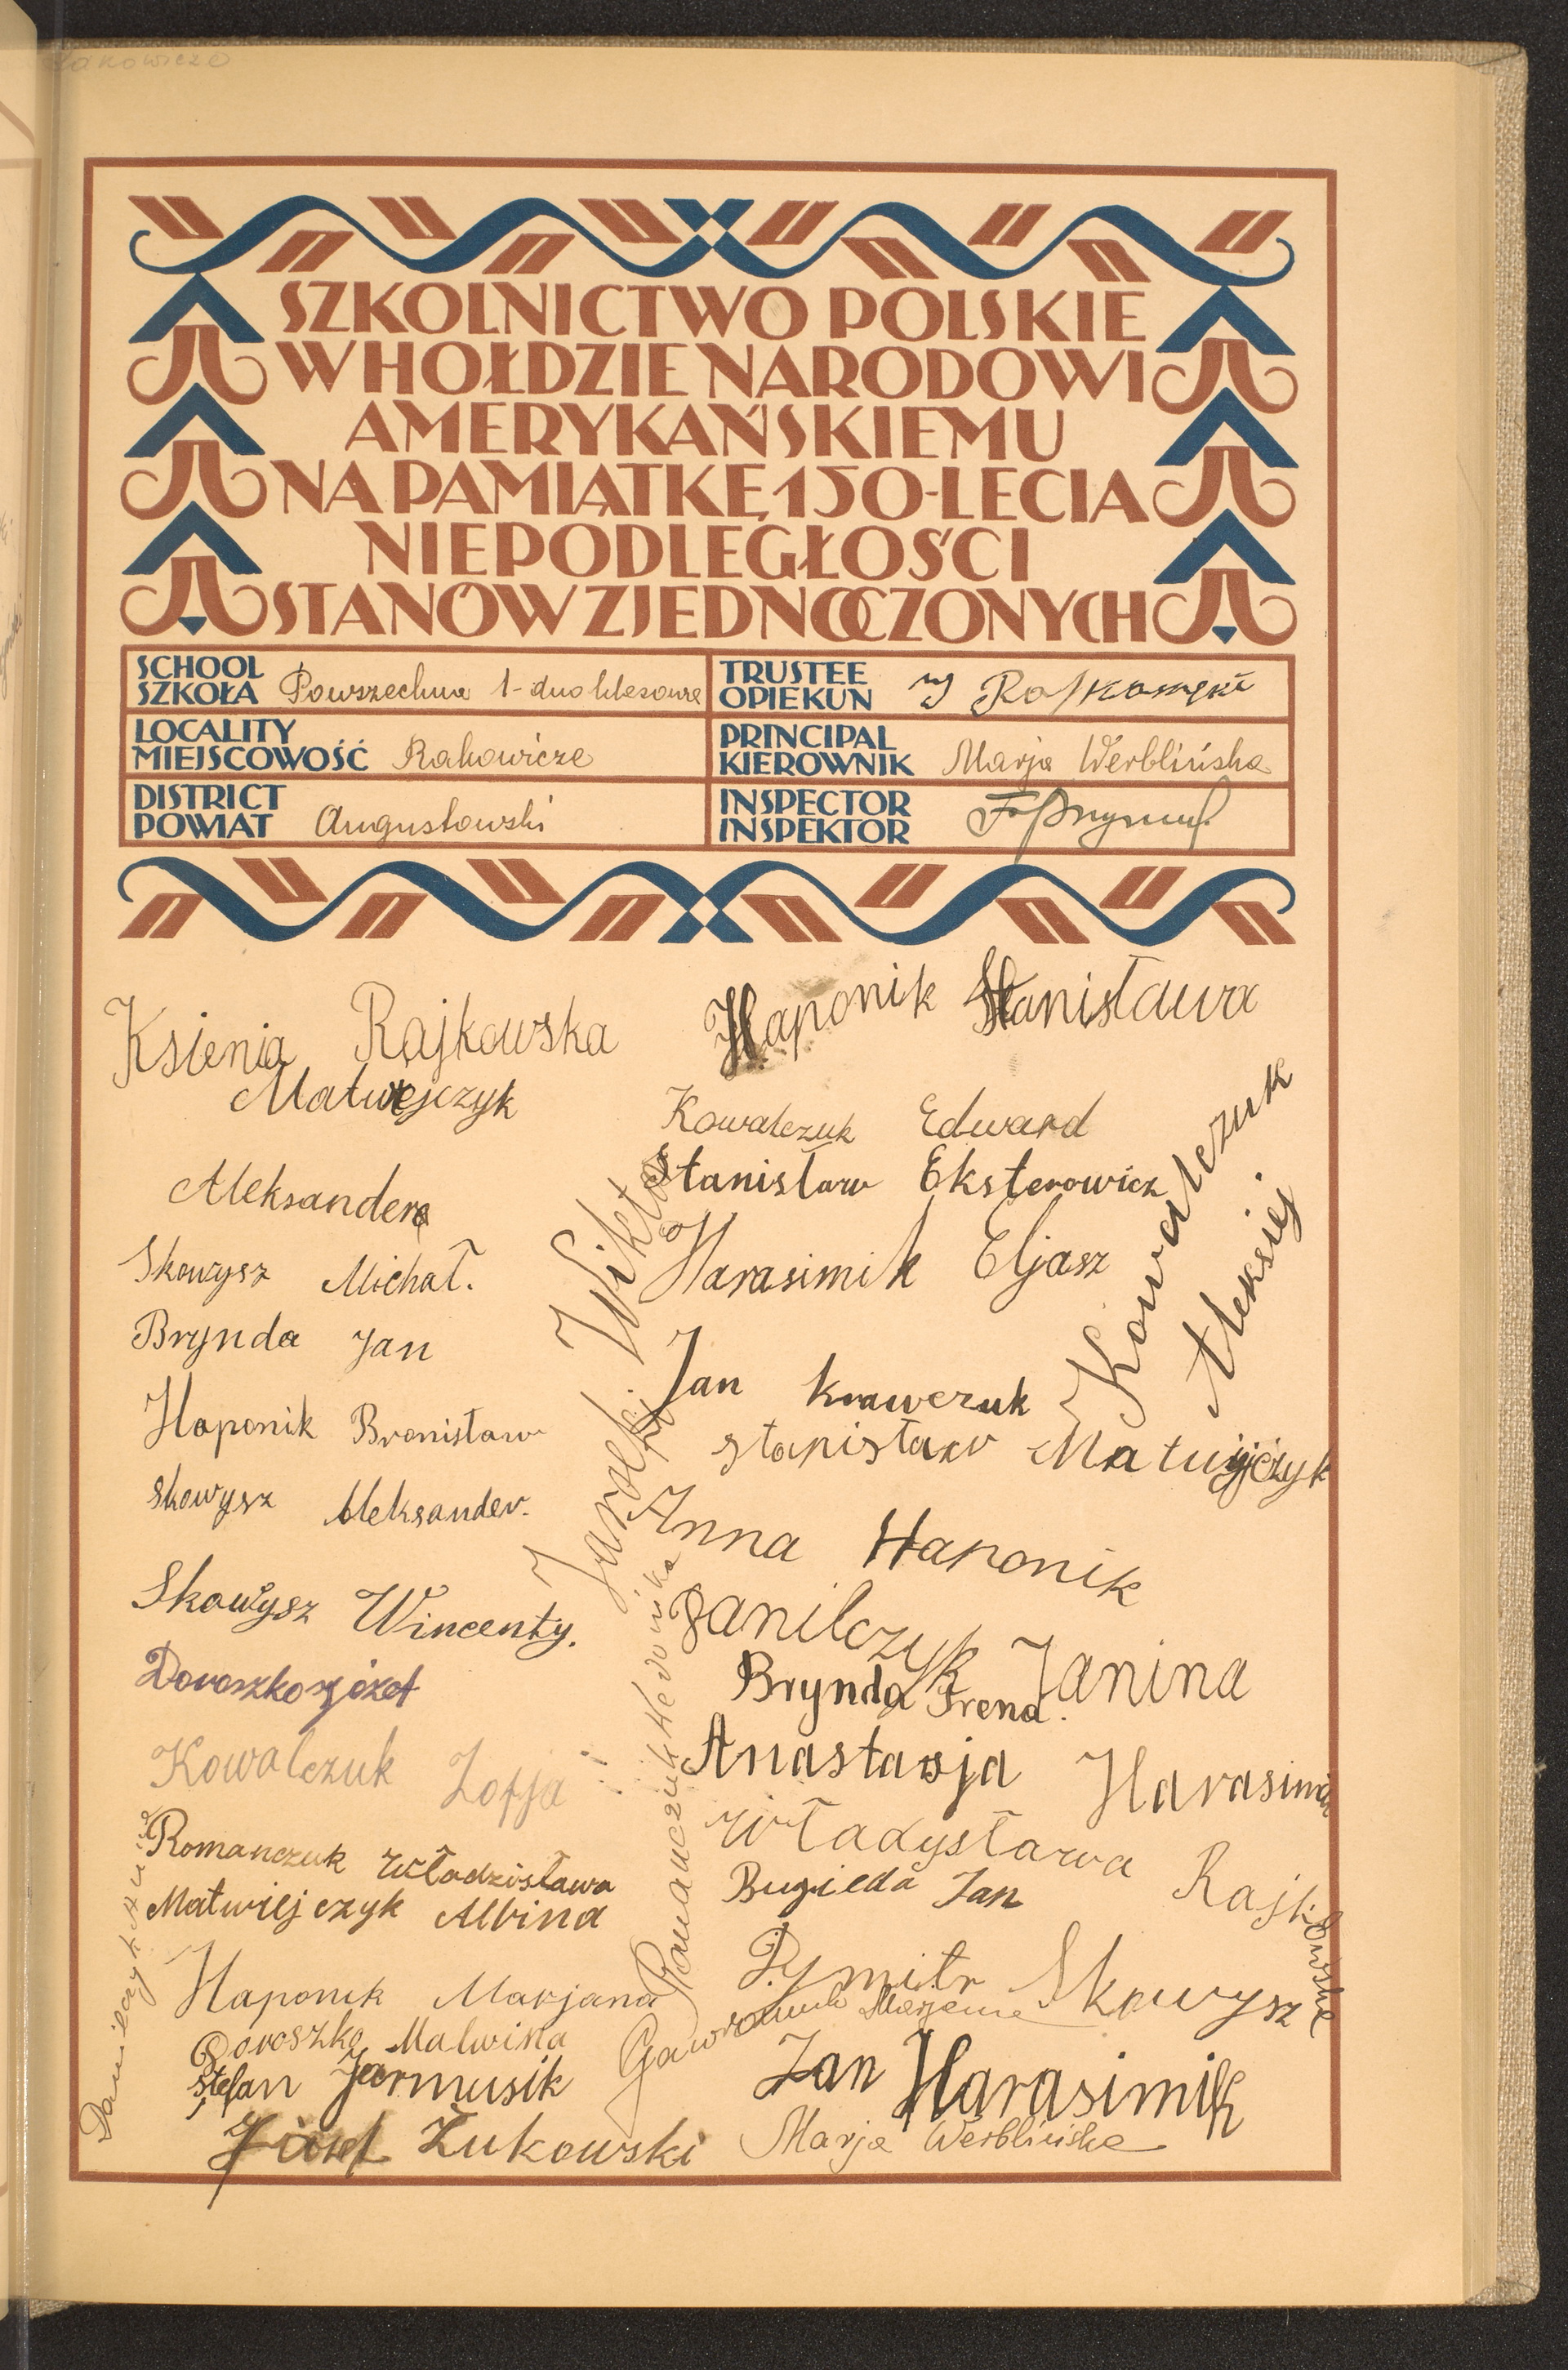 SZKOLNICTWO POLSKIE
W HOŁDZIE NARODOWI
AMERYKAŃSKIEMU
NA PAMIĄTKĘ 150-LECIA
NIEPODLEGŁOŚCI
STANÓW ZJEDNOCZONYCH
SCHOOL
SZKOŁA Powszechna 1-dno klasowa
TRUSTEE
OPIEKUN
LOCALITY
MIEJSCOWOŚĆ Rakowicze
PRINCIPAL
KIEROWNIK Marja Werblińska
DISTRICT
POWIAT Augustowski
INSPECTOR
INSPEKTOR
Ksienia Rajkowska
Matwiejczyk
Aleksandera
Skowysz Michał.
Brynda Jan
Haponik Bronisław
Skowysz Aleksander.
Skowysz Wincenty.
Doroszko Józef
Kowalczuk Zofja
Romanczuk Władzisława
Matwiejczyk Albina
Haponik Marjana
Doroszko Malwina
Stefan Jarmusik
Józef Żukowski
Danilczyk
Wiktor
Romanczuk
Haponik Stanisława
Kowalczuk Edward
Stanisław Eksterowicz
Harasimik Eljasz
Kowalczuk
Aleksiej
Jan Krawczuk
Stanisław Matwijczyk
Anna Haponik
Danilczyk Janina
Brynda Irena.
Anastazja Harasimik
Władysława Rajkowska
Bugieda Jan
Dymitr Skowysz
Marjanna
Jan Harasimik
Marja Werblińska